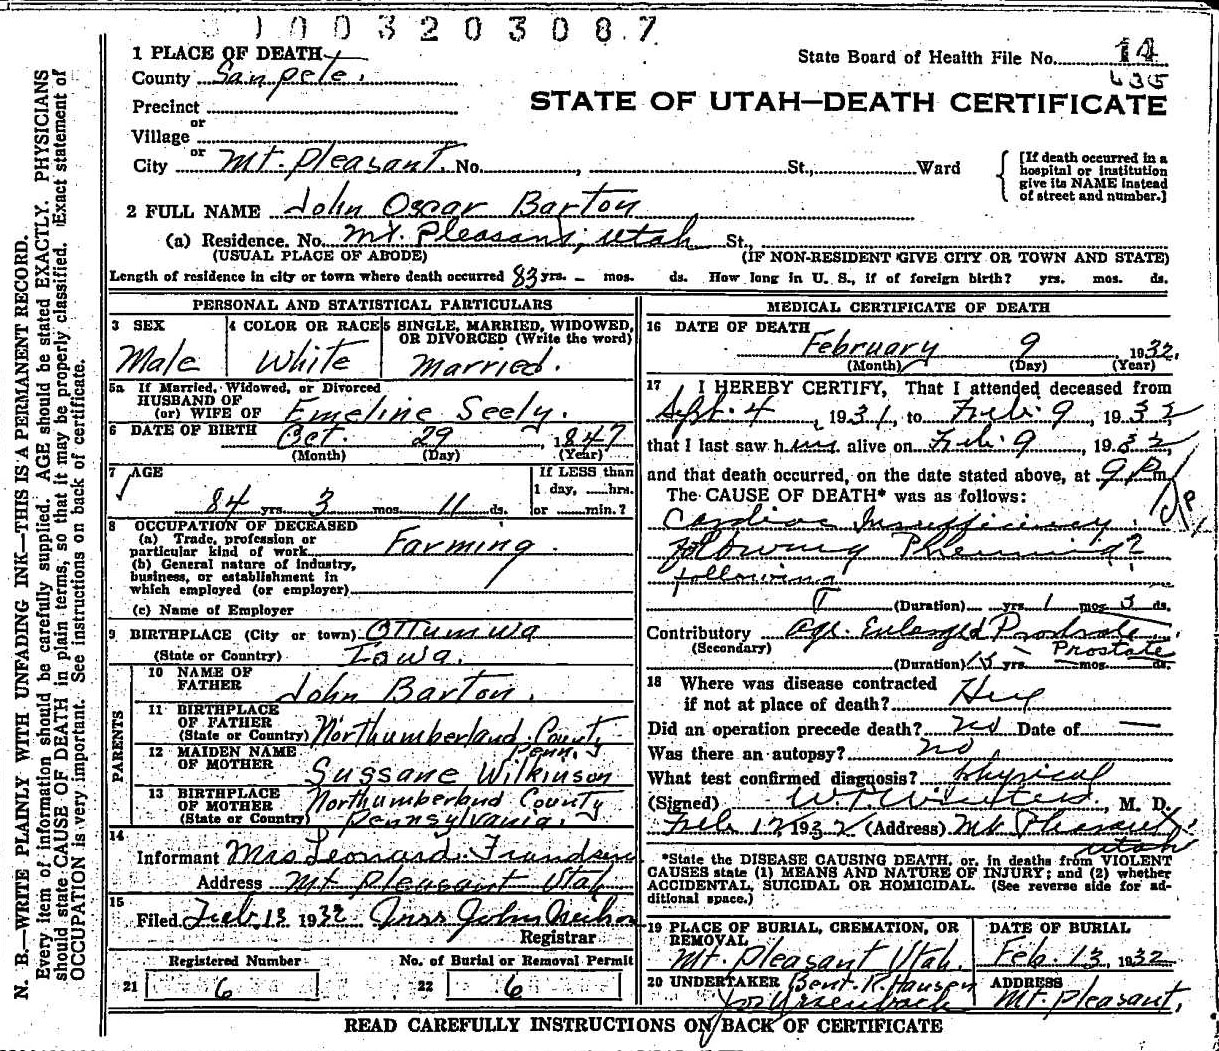 1003203087
1 PLACE OF DEATH
State Board of Health File No. 14
County Sanpete.
635
STATE OF UTAH—DEATH CERTIFICATE
Precinct
or
Village
or
City Mt. Pleasant. No. , St., Ward
[If death occurred in a hospital or institution give its NAME instead of street and number.]
2 FULL NAME John Oscar Barton
(a) Residence. No. Mt. Pleasant, Utah St.,
(USUAL PLACE OF ABODE) (IF NON-RESIDENT GIVE CITY OR TOWN AND STATE)
Length of residence in city or town where death occurred 83 yrs. – mos. ds. How long in U. S., if of foreign birth? yrs. mos. ds.
PERSONAL AND STATISTICAL PARTICULARS
3 SEX
Male
4 COLOR OR RACE
White
5 SINGLE, MARRIED, WIDOWED,
OR DIVORCED (Write the word)
Married.
5a If Married, Widowed, or Divorced
HUSBAND OF
(or) WIFE OF Emeline Seely.
6 DATE OF BIRTH Oct. 29, 1847
(Month) (Day) (Year)
7 AGE
84 yrs. 3 mos. 11 ds.
If LESS than
1 day, hrs.
or min.?
8 OCCUPATION OF DECEASED
(a) Trade, profession or
particular kind of work Farming.
(b) General nature of industry,
business, or establishment in
which employed (or employer)
(c) Name of Employer
9 BIRTHPLACE (City or town) Ottumwa
(State or Country) Iowa.
PARENTS
10 NAME OF
FATHER John Barton.
11 BIRTHPLACE
OF FATHER
(State or Country) Northumberland County
Penn.
12 MAIDEN NAME
OF MOTHER Sussane Wilkinson
13 BIRTHPLACE
OF MOTHER
(State or Country) Northumberland County
Pennsylvania.
14
Informant Mrs Leonard Frandsen
Address Mt Pleasant Utah
15
Filed Feb. 13 1932 John
Registrar
Registered Number
21 6
No. of Burial or Removal Permit
22 6
MEDICAL CERTIFICATE OF DEATH
16 DATE OF DEATH
February 9, 1932.
(Month) (Day) (Year)
17 I HEREBY CERTIFY, That I attended deceased from
Sept. 4, 1931, to Feb. 9, 1932,
that I last saw him alive on Feb. 9, 1932,
and that death occurred, on the date stated above, at 9 P m
The CAUSE OF DEATH* was as follows:
Cardiac Insufficiency
following Pneumonia?
following
(Duration) yrs. 1 mos. 3 ds.
Contributory Enlarged Prostrate
(Secondary) Prostate
(Duration) 15 yrs. — mos. ds.
18 Where was disease contracted
if not at place of death?
Did an operation precede death? no Date of —
Was there an autopsy? no
What test confirmed diagnosis? Physical
(Signed) W. P. Winters, M. D.
Feb 12 1932 (Address) Mt Pleasant
Utah
*State the DISEASE CAUSING DEATH, or, in deaths from VIOLENT
CAUSES state (1) MEANS AND NATURE OF INJURY; and (2) whether
ACCIDENTAL, SUICIDAL OR HOMICIDAL. (See reverse side for ad-
ditional space.)
19 PLACE OF BURIAL, CREMATION, OR
REMOVAL
Mt. Pleasant Utah.
DATE OF BURIAL
Feb. 13, 1932
20 UNDERTAKER Bent. R. Hansen
ADDRESS
Mt. Pleasant,
READ CAREFULLY INSTRUCTIONS ON BACK OF CERTIFICATE
N. B.—WRITE PLAINLY WITH UNFADING INK—THIS IS A PERMANENT RECORD.
Every item of information should be carefully supplied. AGE should be stated EXACTLY. PHYSICIANS
should state CAUSE OF DEATH in plain terms, so that it may be properly classified. Exact statement of
OCCUPATION is very important. See instructions on back of certificate.